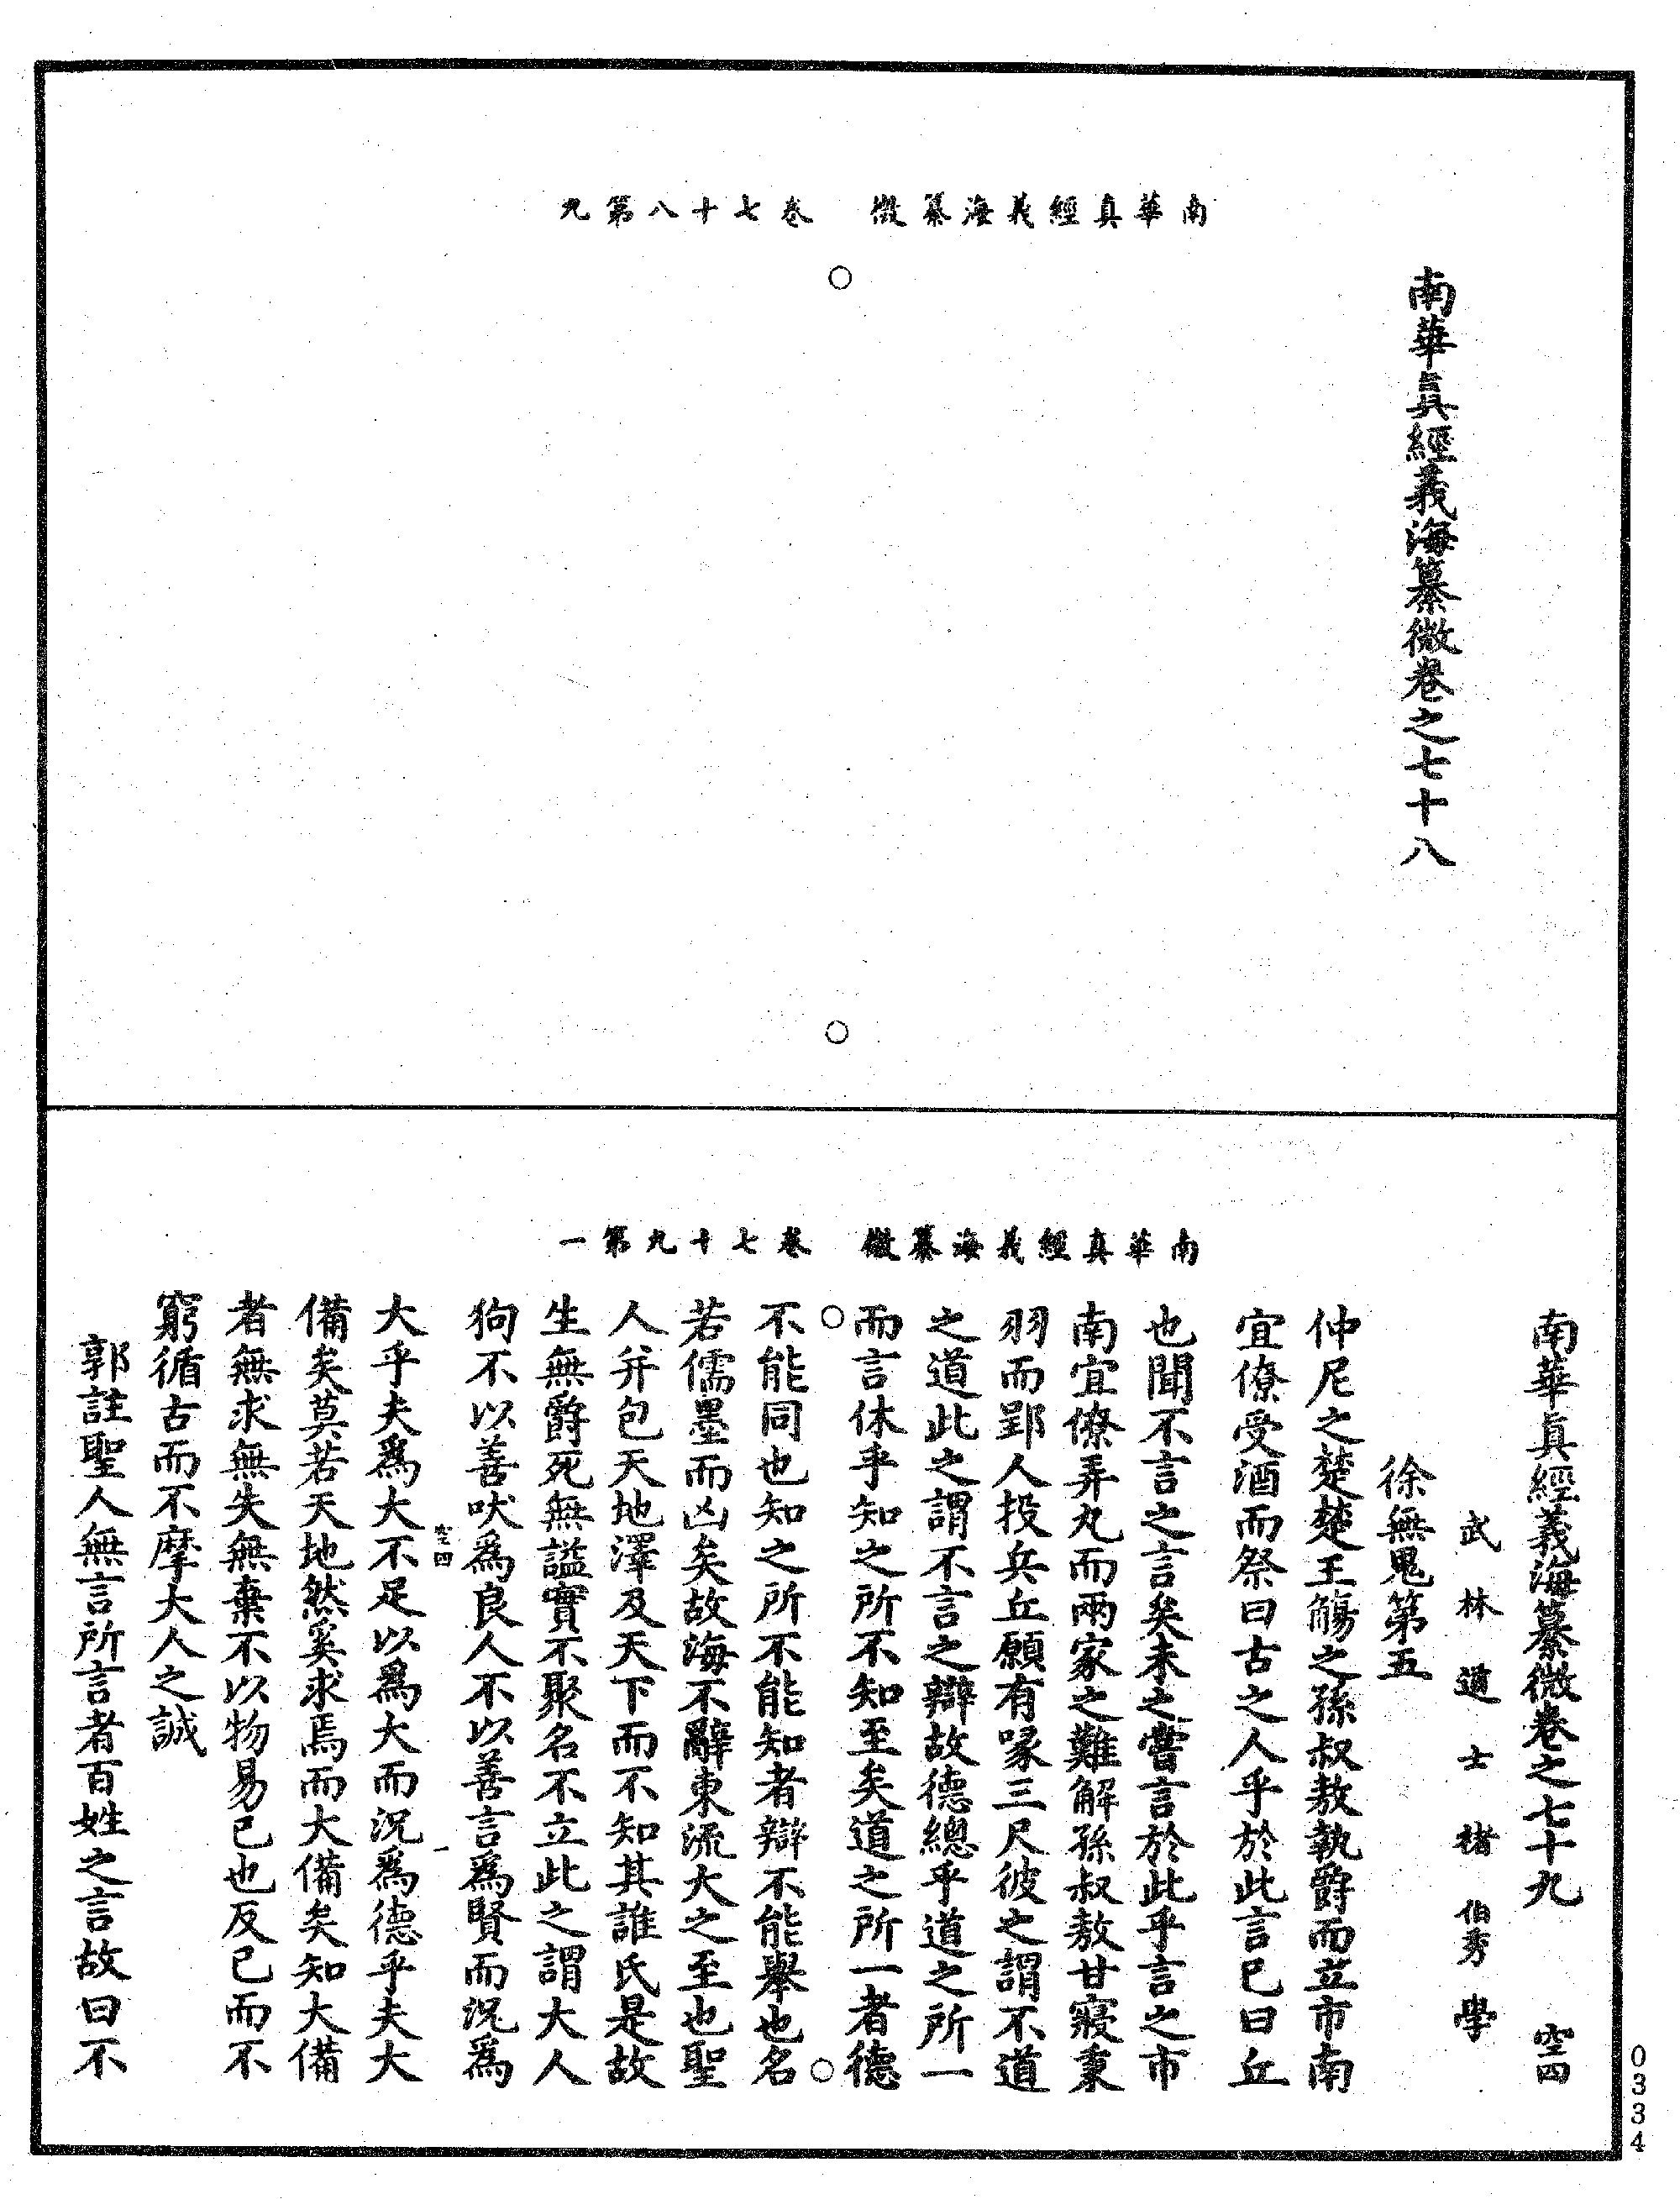 南華真經義海纂微　卷七十八第九
南華眞經義海纂微卷之七十八
南華真經義海纂微　卷七十九第一
南華眞經義海纂微卷之七十九　空四
武林道士褚伯秀學
徐無鬼第五
仲尼之楚楚王觴之孫叔敖執爵而立市南
宜僚受酒而祭曰古之人乎於此言已曰丘
也聞不言之言矣未之嘗言於此乎言之市
南宜僚弄丸而兩家之難解孫叔敖甘寢秉
羽而郢人投兵丘願有喙三尺彼之謂不道
之道此之謂不言之辯故德總乎道之所一
而言休乎知之所不知至矣道之所一者德
不能同也知之所不能知者辯不能舉也名
若儒墨而凶矣故海不辭東流大之至也聖
人并包天地澤及天下而不知其誰氏是故
生無爵死無謚實不聚名不立此之謂大人
狗不以善吠爲良人不以善言爲賢而況爲
空四　一
大乎夫爲大不足以爲大而況爲德乎夫大
備矣莫若天地然奚求焉而大備矣知大備
者無求無失無棄不以物易已也反已而不
窮循古而不摩大人之誠
郭註聖人無言所言者百姓之言故曰不
0334